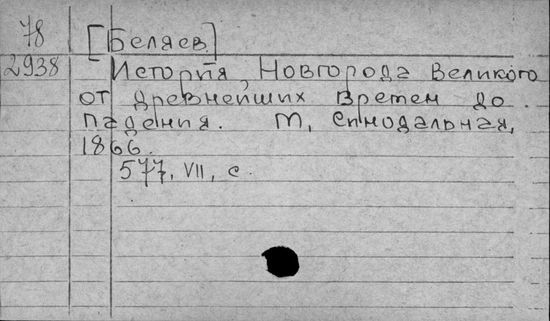 78 [Беляев]
2938 История, Новгорода Великого
от древнейших времен до
падения. М, Синодальная,
1866.
577, VII, с.